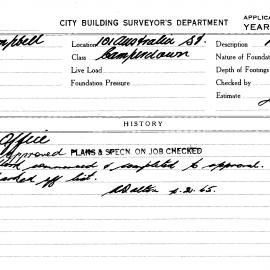 CITY BUILDING SURVEYOR'S DEPARTMENT
APPLIC
YEAR
mpbell
Location 101 Australia St.
Description
Class Camperdown
Nature of Founda
Live Load
Depth of Footings
Foundation Pressure
Checked by
Estimate
HISTORY
Office
Approved PLANS & SPECN. ON JOB CHECKED
commenced & completed to approval.
off list.